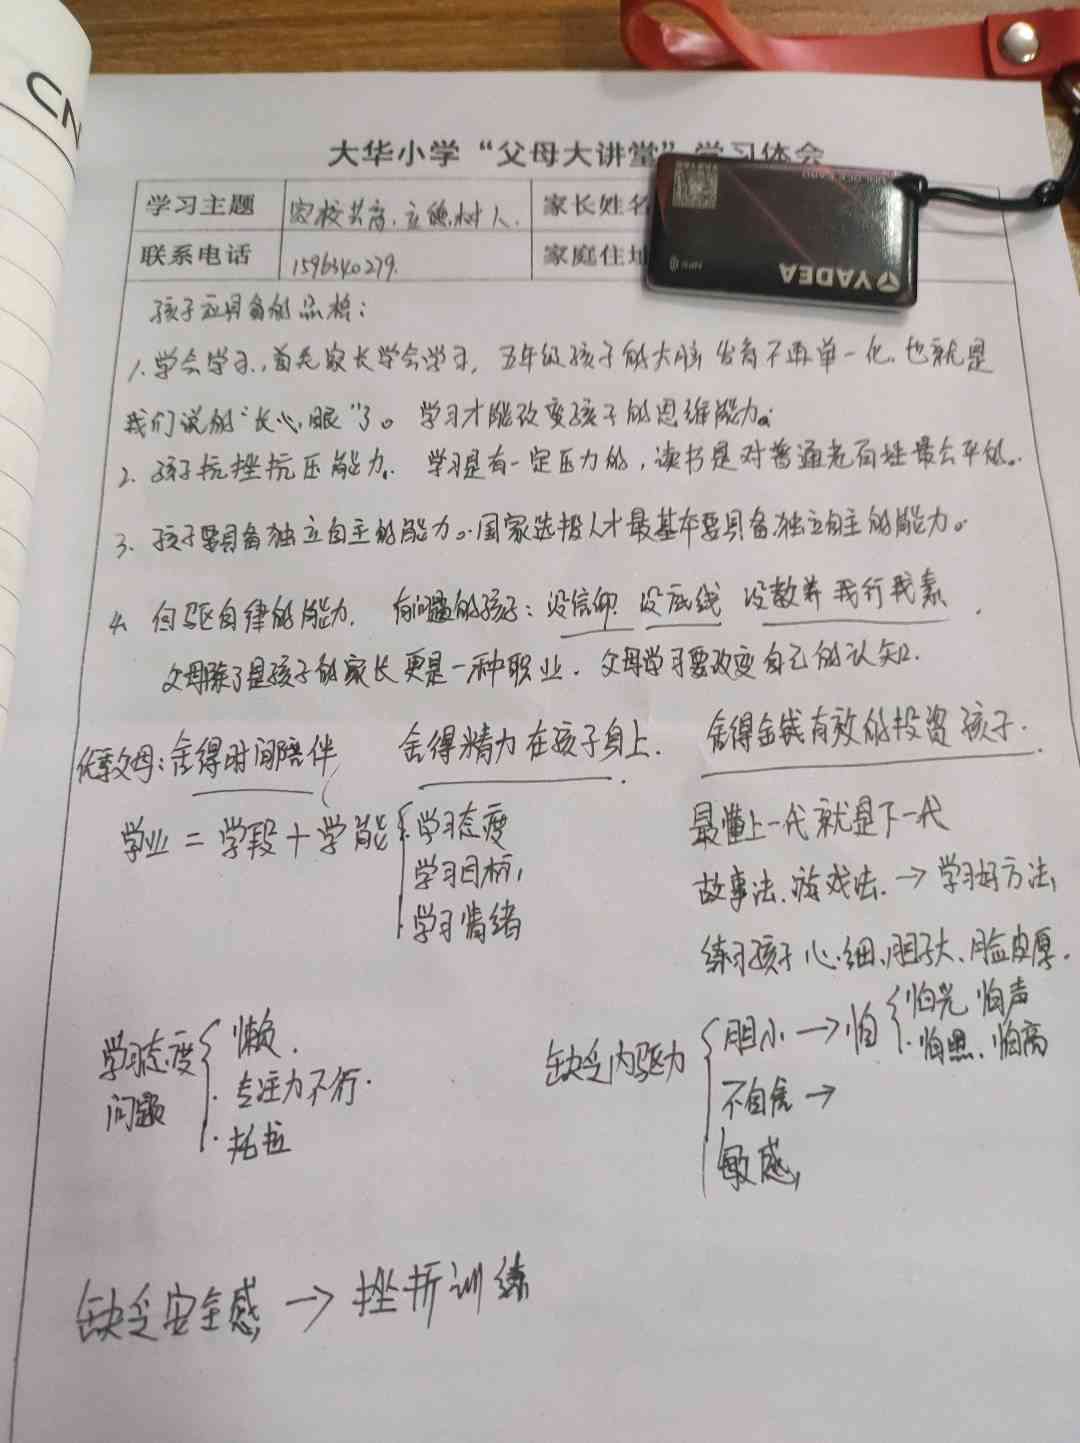 CN
大华小学“父母大讲堂”学习体会
学习主题 家校共育,立德树人. 家长姓名
联系电话 1596340279. 家庭住址
YADEA
NFC
孩子应具备的品格:
1. 学会学习,首先家长学会学习, 五年级孩子的大脑发育不再单一化.也就是
我们说的“长心眼”了。 学习才能改变孩子的思维能力。
2. 孩子抗挫抗压能力. 学习是有一定压力的,读书是对普通老百姓最公平的.
3. 孩子要具备独立自主的能力。国家选拔人才最基本要具备独立自主的能力。
4. 自驱自律的能力. 有问题的孩子:没信仰 没底线 没教养 我行我素.
父母除了是孩子的家长更是一种职业. 父母学习要改变自己的认知.
优秀父母:舍得时间陪伴 舍得精力在孩子身上. 舍得金钱有效的投资孩子.
学业 = 学段 + 学能 { 学习态度
学习目标,
学习情绪
最懂上一代就是下一代
故事法.游戏法. → 学习好方法,
练习孩子心细、胆子大、脸皮厚.
学习态度问题 { 懒.
专注力不行.
拖拉
缺乏内驱力 { 胆小 → 怕 { 怕光 怕声
怕黑、怕高
不自信 →
敏感,
缺乏安全感 → 挫折训练